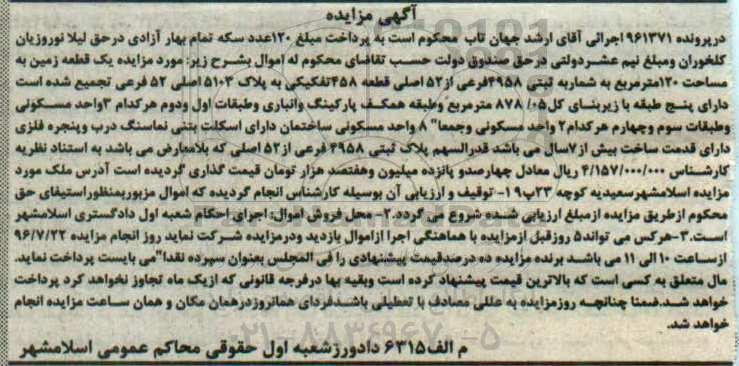 آگهی مزایده
درپرونده ۹۶۱۳۷۱ اجرائی آقای ارشد جهان تاب محکوم است به پرداخت مبلغ ۱۲۰عدد سکه تمام بهار آزادی درحق لیلا نوروزیان
کلخوران ومبلغ نیم عشردولتی درحق صندوق دولت حسب تقاضای محکوم له اموال بشرح زیر: مورد مزایده یک قطعه زمین به
مساحت ۱۲۰مترمربع به شماربه ثبتی ۴۹۵۸فرعی از۵۲ اصلی قطعه ۴۵۸تفکیکی به پلاک ۵۱۰۳ اصلی ۵۲ فرعی تجمیع شده است
دارای پنج طبقه با زیربنای کل۰۵/ ۸۷۸ مترمربع وطبقه همکف پارکینگ وانباری وطبقات اول ودوم هرکدام ۲واحد مسکونی
وطبقات سوم وچهارم هرکدام۲ واحد مسکونی وجمعا" ۸ واحد مسکونی ساختمان دارای اسکلت بتنی نماسنگ درب وپنجره فلزی
دارای قدمت ساخت بیش از۷سال می باشد قدرالسهم پلاک ثبتی ۴۹۵۸ فرعی از۵۲ اصلی که بلامعارض می باشد به استناد نظریه
کارشناس ۴/۱۵۷/۰۰۰/۰۰۰ ریال معادل چهارصدو پانزده میلیون وهفتصد هزار تومان قیمت گذاری گردیده است آدرس ملک مورد
مزایده اسلامشهرسعیدیه کوچه ۲۳پ۱۹- توقیف و ارزیابی آن بوسیله کارشناس انجام گردیده که اموال مزبوربمنظوراستیفای حق
محکوم ازطریق مزایده ازمبلغ ارزیابی شده شروع می گردد.۲- محل فروش اموال: اجرای احکام شعبه اول دادگستری اسلامشهر
است.۳-هرکس می تواند۵ روزقبل ازمزایده با هماهنگی اجرا ازاموال بازدید ودرمزایده شرکت نماید روز انجام مزایده ۹۶/۷/۲۲
ازساعت ۱۰ الی ۱۱ می باشد برنده مزایده ده درصدقیمت پیشنهادی را فی المجلس بعنوان سپرده نقدا" می بایست پرداخت نماید.
مال متعلق به کسی است که بالاترین قیمت پیشنهاد کرده است وبقیه بها درفرجه قانونی که ازیک ماه تجاوز نخواهد کرد پرداخت
خواهد شد.ضمنا چنانچه روزمزایده به عللی مصادف با تعطیلی باشدفردای همانروزدرهمان مکان و همان ساعت مزایده انجام
خواهد شد.
۰۲۱-۸۸۳۴۹۶۷۰-۵
م الف۶۳۱۵ دادورزشعبه اول حقوقی محاکم عمومی اسلامشهر